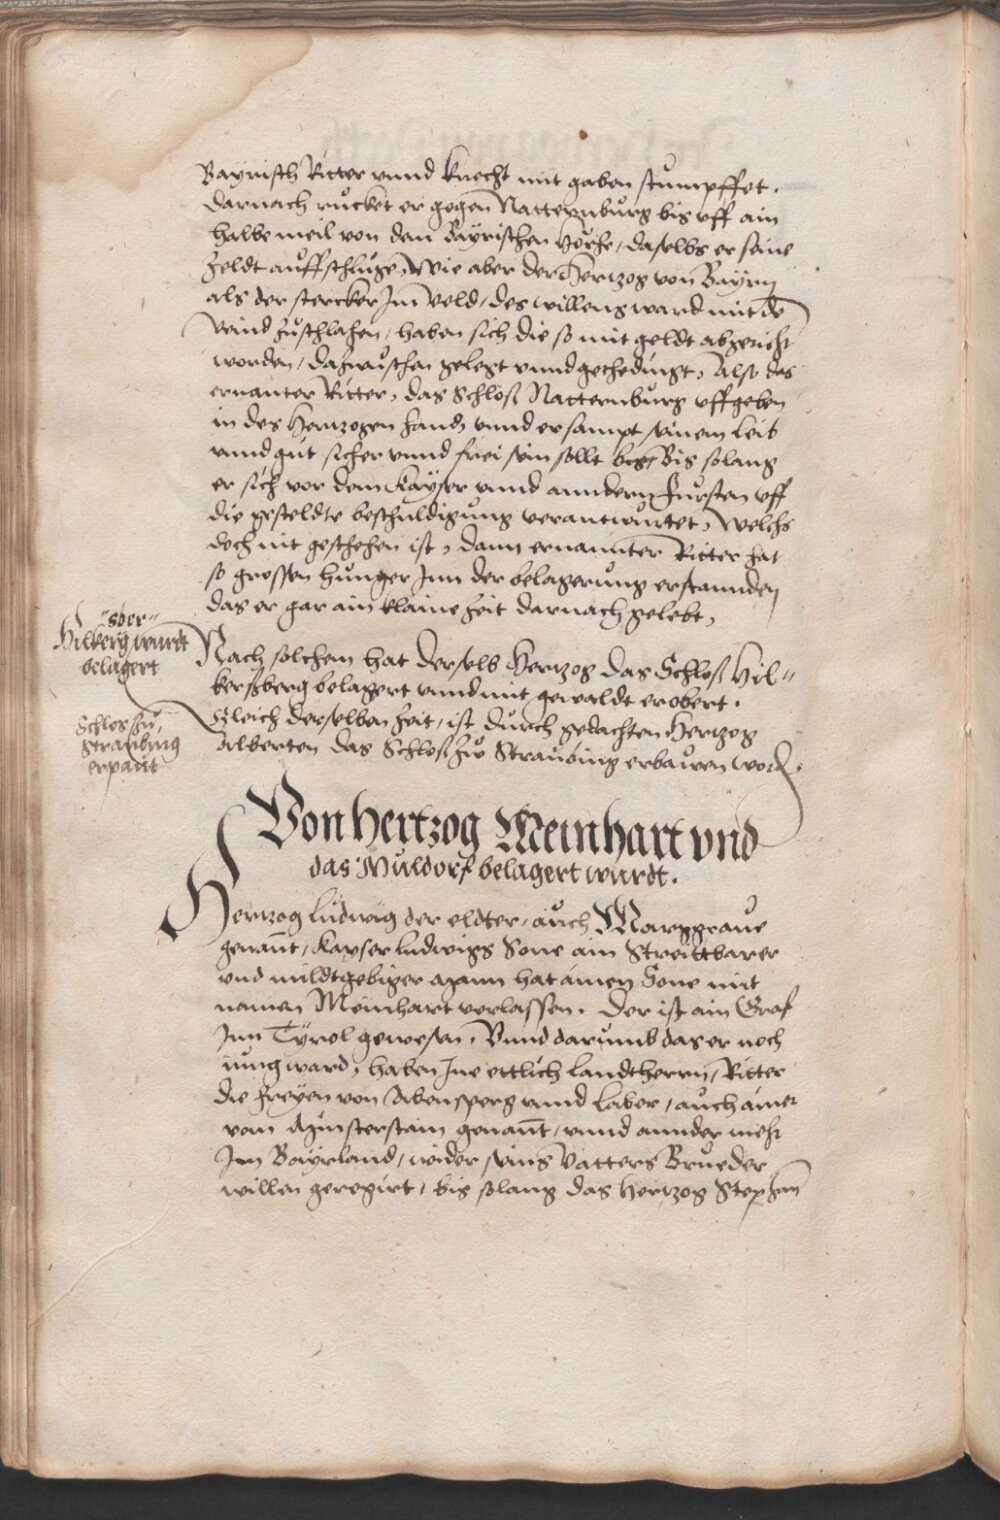 Bayrisch Ritter vnnd knecht mit gaben stumpffet.
Darnach rucket er gegen Natternburg bis vff ain
halbe meil von den Bayrischen , daselbs er seine
Zeldt auffschluge, Wie aber der Hertzog von Bayrn
als der stercker Im veld, des willens ward mit dē
Veind zuschlahen, haben sich die so mit geldt abgericht
worden, dazwuschen gelegt vnnd gethedingt, Also das
ernanter Ritter, das Schloß Natternburg vffgeben
in des Hertzogen hand, vnnd er sampt seinem leib
vnnd gut sicher vnnd frei sein sollt bis, Bis solang
er sich vor dem Kayser vnnd anndern Fursten vff
die gesteldte beschuldigung verantwurtet, Welchs
doch nit geschehen ist, dann ernannter Ritter hat
so grossen hunger Inn der belagerung erstannden
das er gar ain klaine Zeit darnach gelebt,
Hilkerg wurdt
belagert
Nach solchem hat derselb Hertzog das Schloß Hil"
kerßberg belagert vnnd mit gewaldt erobert.
Schlos zu
Straubing
erpaut
Gleich derselben Zeit, ist durch gedachten Hertzog
Alberten das Schloß zu Straubing erbawen word.
Von Hertzog Meinhart vnd
das Muldorf belagert wurdt.
Hertzog Ludwig der eldter, auch Marggraue
genant, Kayser Ludwigs Sone ain Streittbarer
vnd mildtgebiger mann hat ainen Sone mit
namen Meinhart verlassen. Der ist ain Graf
Inn Tyrol gewesen, Vnnd darumb das er noch
iung ward, haben Ine ettlich Landtherrn, Ritter
die freyen von Abensperg vnnd Laber, auch ainer
vom genant, vnnd annder mehr
Im Bayrland, wider seins Vatters Brueder
willen geregirt, bis solang das Hertzog Stephan